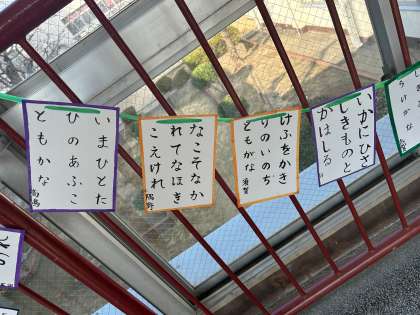 いかにひさ
しきものと
かはしる
けふをかき
りのいのち
ともがな
須賀
なこそなか
れてなほき
こえけれ
いまひとた
ひのあふこ
ともかな
高嶋